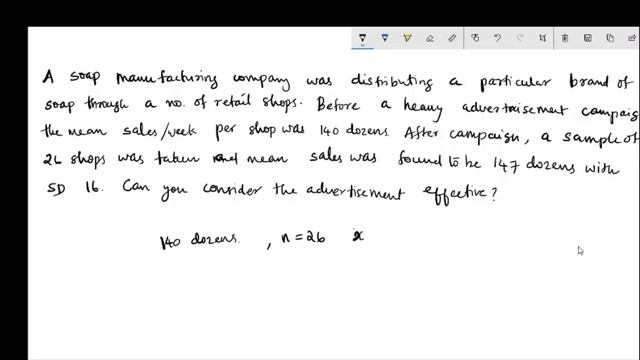 A soap manufacturing company was distributing a particular brand of
soap through a no. of retail shops. Before a heavy advertisement campaig
the mean sales/week per shop was 140 dozens. After campaign, a sample of
26 shops was taken and mean sales was found to be 147 dozens with
SD 16. Can you consider the advertisement effective?
140 dozens. , n = 26 x